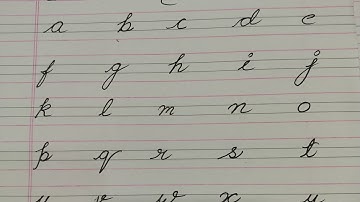 a b c d e
f g h i j
k l m n o
p q r s t
u v w x y